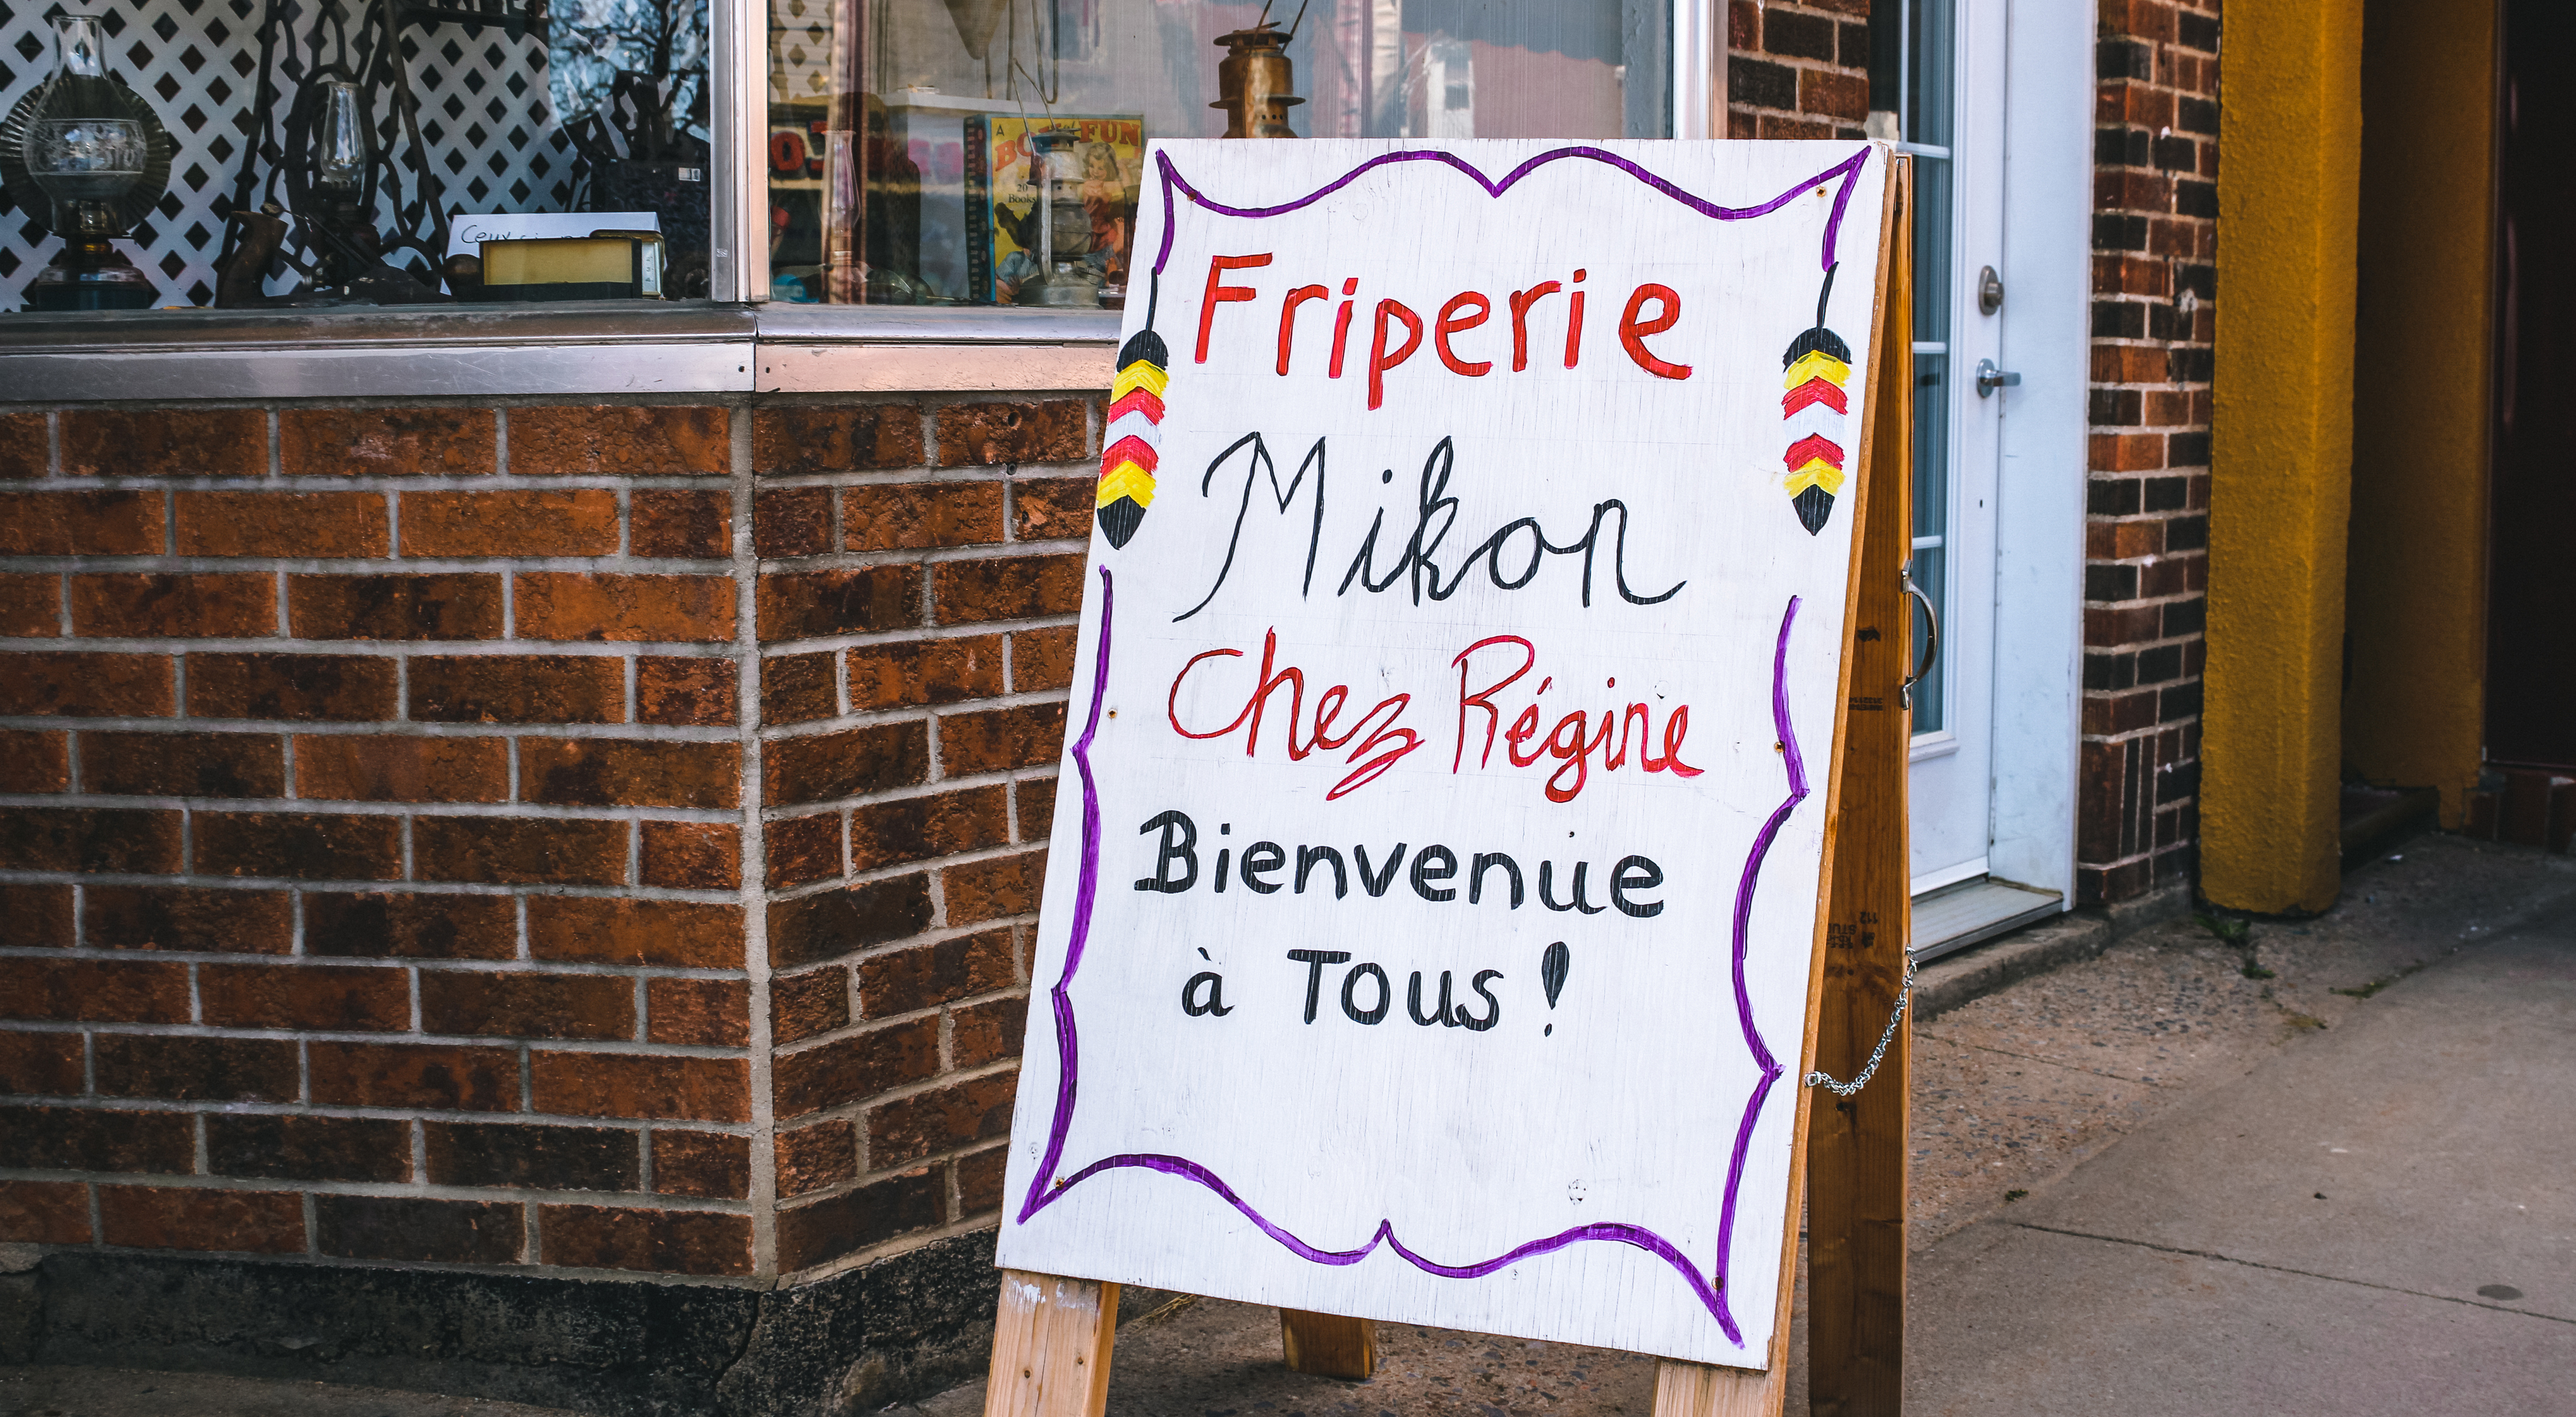 Friperie
Mikon
Chez Régine
Bienvenue
à Tous !
A
FUN
20
Books